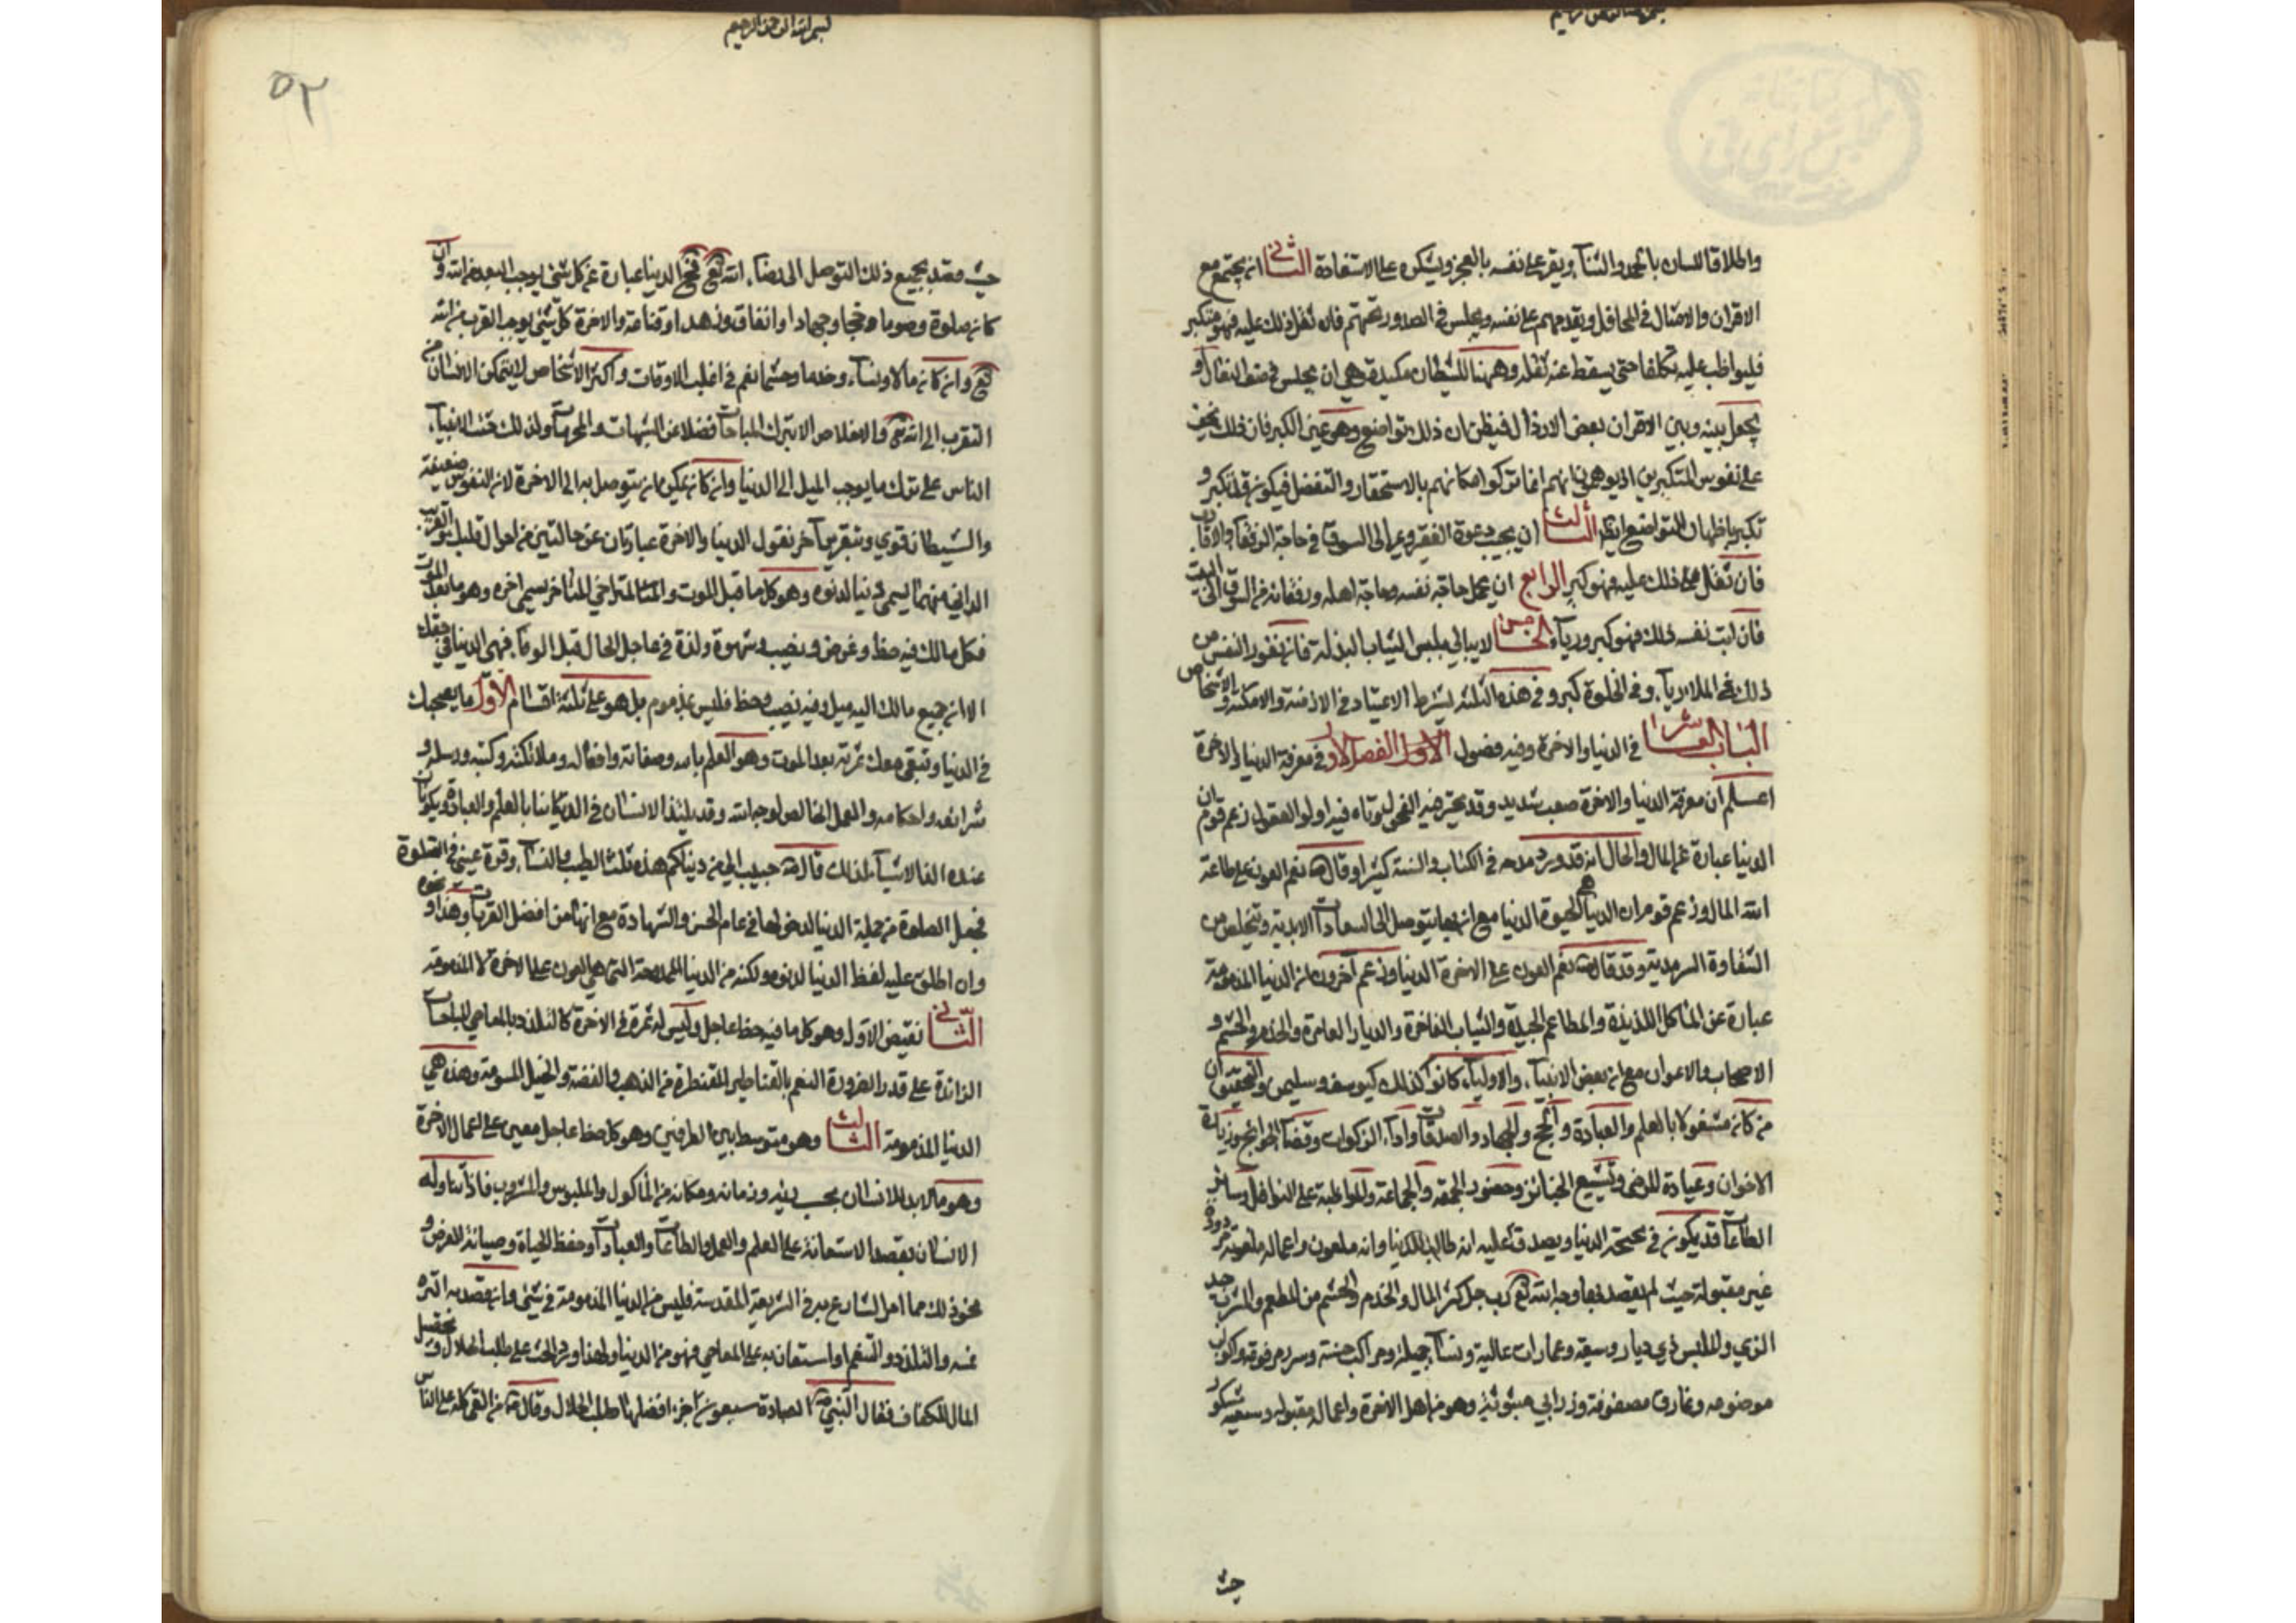 بسم الله الرحمن الرحيم
واطلاق اللسان بالحمد والثناء ويقر على نفسه بالعجز ويشكره على الاستفادة الثاني ان يجتمع مع
الاقران والامثال في المحافل ويقدمهم على نفسه ويجلس في الصدور تحتهم فان ثقل ذلك عليه فهو متكبر
فليواظب عليه تكلفا حتى يسقط عنه ثقله وههنا للشيطان مكيدة وهي ان يجلس في صف النعال او
يجعل بينه وبين الاقران بعض الارذال فيظن ان ذلك تواضع وهو عين الكبر فان ذلك يخف
على نفوس المتكبرين اذ يوهمون انهم انما تركوا مكانهم بالاستحقار والتفضل فيكون قد تكبر و
تكبر باظهار التواضع ايضا الثالث ان يجيب دعوة الفقير ويمر الى السوق في حاجة الرفقاء والاقارب
فان ثقل ذلك عليه فهو كبر الرابع ان يحمل حاجة نفسه وحاجة اهله ورفقائه من السوق الى البيت
فان ابت نفسه ذلك فهو كبر ورياء الخامس لا يبالي بلبس الثياب البذلة فان نفور النفس من
ذلك في الملاء رياء وفي الخلوة كبر وفي هذه الثلثة يشترط الاعتياد في الازمنة والامكنة والاشخاص
الباب العاشر في الدنيا والاخرة وفيه فصول الاول الفصل الاول في معرفة الدنيا والاخرة
اعلم ان معرفة الدنيا والاخرة صعب شديد وقد تحير فيه الفحول وتاه فيه اولوا العقول زعم قوم ان
الدنيا عبارة عن المال والحال انه قد ورد مدحه في الكتاب والسنة كثيرا وقال ص نعم العون على طاعة
الله المال وزعم قوم ان الدنيا هي الحيوة الدنيا مع انه بها يتوصل الى السعادات الابدية ويتخلص من
الشقاوة السرمدية وقد قال ص نعم العون على الاخرة الدنيا وزعم آخرون ان الدنيا المذمومة
عبارة عن المآكل اللذيذة والمطاعم الجيدة والثياب الفاخرة والديار العامرة والخدم والحشم و
الاصحاب والاعوان مع ان بعض الانبياء والاولياء كانوا كذلك كيوسف وسليمن والتحقيق ان
من كان مشغولا بالعلم والعبادة والحج والجهاد والصدقات واداء الزكوات وقضاء الحوائج وزيارة
الاخوان وعيادة المرضى وتشييع الجنائز وحضور الجمعة والجماعة والمواظبة على النوافل وسائر
الطاعات قد يكون في بحبحة الدنيا ويصدق عليه انه طالب للدنيا وانه ملعون واعماله ملعونة مردودة
غير مقبولة حيث لم يقصد بها وجه الله تع ورب رجل كثير المال والخدم والحشم من المطعم والشرب جيد
الزي والملبس ذي ديار وسيعة وعمارات عالية ونساء جميلة ومراكب حسنة وسرر مرفوعة واكواب
موضوعه ونمارق مصفوفة وزرابي مبثوثة وهو من اهل الاخرة واعماله مقبوله وسعيه مشكور
حيث
بسم الله الرحمن الرحيم
٥٢
حيث قصد بجميع ذلك التوصل الى رضاء الله تع فح الدنيا عبارة عن كل شئ يوجب البعد عن الله وان
كان صلوة وصوما وحجا وجهادا وانفاق وزهدا وقناعة والاخرة كل شئ يوجب القرب من الله
تع وان كان مالا ونساء وخدما وحشما نعم في اغلب الاوقات واكثر الاشخاص لا يتمكن الانسان من
التقرب الى الله تع والاخلاص الا بترك المباحات فضلا عن الشبهات والمحرمات ولذلك حث الانبياء
الناس على ترك ما يوجب الميل الى الدنيا وان كان يمكن ان يتوصل به الى الاخرة لان النفوس ضعيفة
والشيطان قوي وبتقرير آخر نقول الدنيا والاخرة عبارتان عن حالتين من احوال قلبك القريب
الداني منهما يسمى دنيا لدنوه وهو كل ما قبل الموت والمتراخي المتاخر يسمى اخره وهو ما بعد الموت
فكل ما لك فيه حظ وغرض ونصيب وشهوة ولذة في عاجل الحال قبل الوفاة فهي الدنيا في حقك
الا ان جميع ما لك اليه ميل وفيه نصيب وحظ فليس بمذموم بل هو على ثلثة اقسام الاول ما يصحبك
في الدنيا وتبقى معك ثمرته بعد الموت وهو العلم بالله وصفاته وافعاله وملائكته وكتبه ورسله و
شرائعه واحكامه والعمل الخالص لوجه الله وقد يلتذ الانسان في الدنيا بالعلم والعبادة ويكونان
عنده الذ الاشياء لذلك قال ص حبب الي من دنياكم هذه ثلث الطيب والنساء وقرة عيني في الصلوة
فجعل الصلوة من جملة الدنيا لدخولها في عالم الحس والشهادة مع انها من افضل القربات وهذا ونحوه
وان اطلق عليه لفظ الدنيا لدنوه لكنه من الدنيا الممدوحة التي هي العون على الاخرة لا المذمومة
الثاني نقيض الاول وهو كل ما فيه حظ عاجل وليس له ثمرة في الاخرة كالتلذذ بالمعاصي والمباحات
الزائدة على قدر الضرورة التنعم بالقناطير المقنطرة من الذهب والفضة والخيل المسومة وهذه هي
الدنيا المذمومة الثالث وهو متوسط بين الطرفين وهو كل حظ عاجل معين على اعمال الاخرة
وهو ما لابد للانسان بحسب بدنه وزمانه ومكانه من المأكول والملبوس والمشروب فاذا تناوله
الانسان بقصد الاستعانة على العلم والعمل والطاعات والعبادات وحفظ الحياة وصيانة العرض و
نحو ذلك مما امر الشارع به في الشريعة المقدسة فليس من الدنيا المذمومة في شئ وان قصد به الترفه
والتلذذ والتنعم او استعان به على المعاصي فهو من الدنيا ولهذا ورد الحث على طلب الحلال وتحصيل
المال للكفاف فقال النبي ص العبادة سبعون جزء افضلها طلب الحلال وقال ص من القى كله على الناس